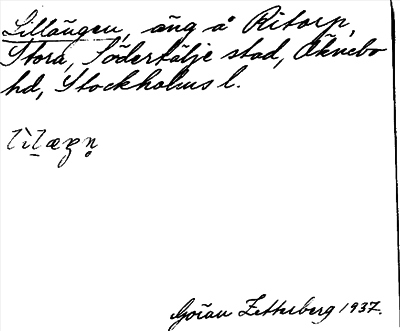 Lillängen, äng å Ritorp,
Stora, Södertälje stad, Öknebo
hd, Stockholms l.
Göran Zetterberg 1937.